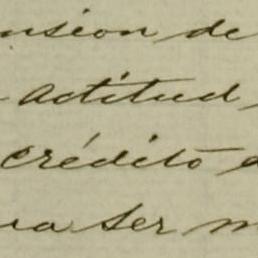 nsion de
actitud
crédito
ser